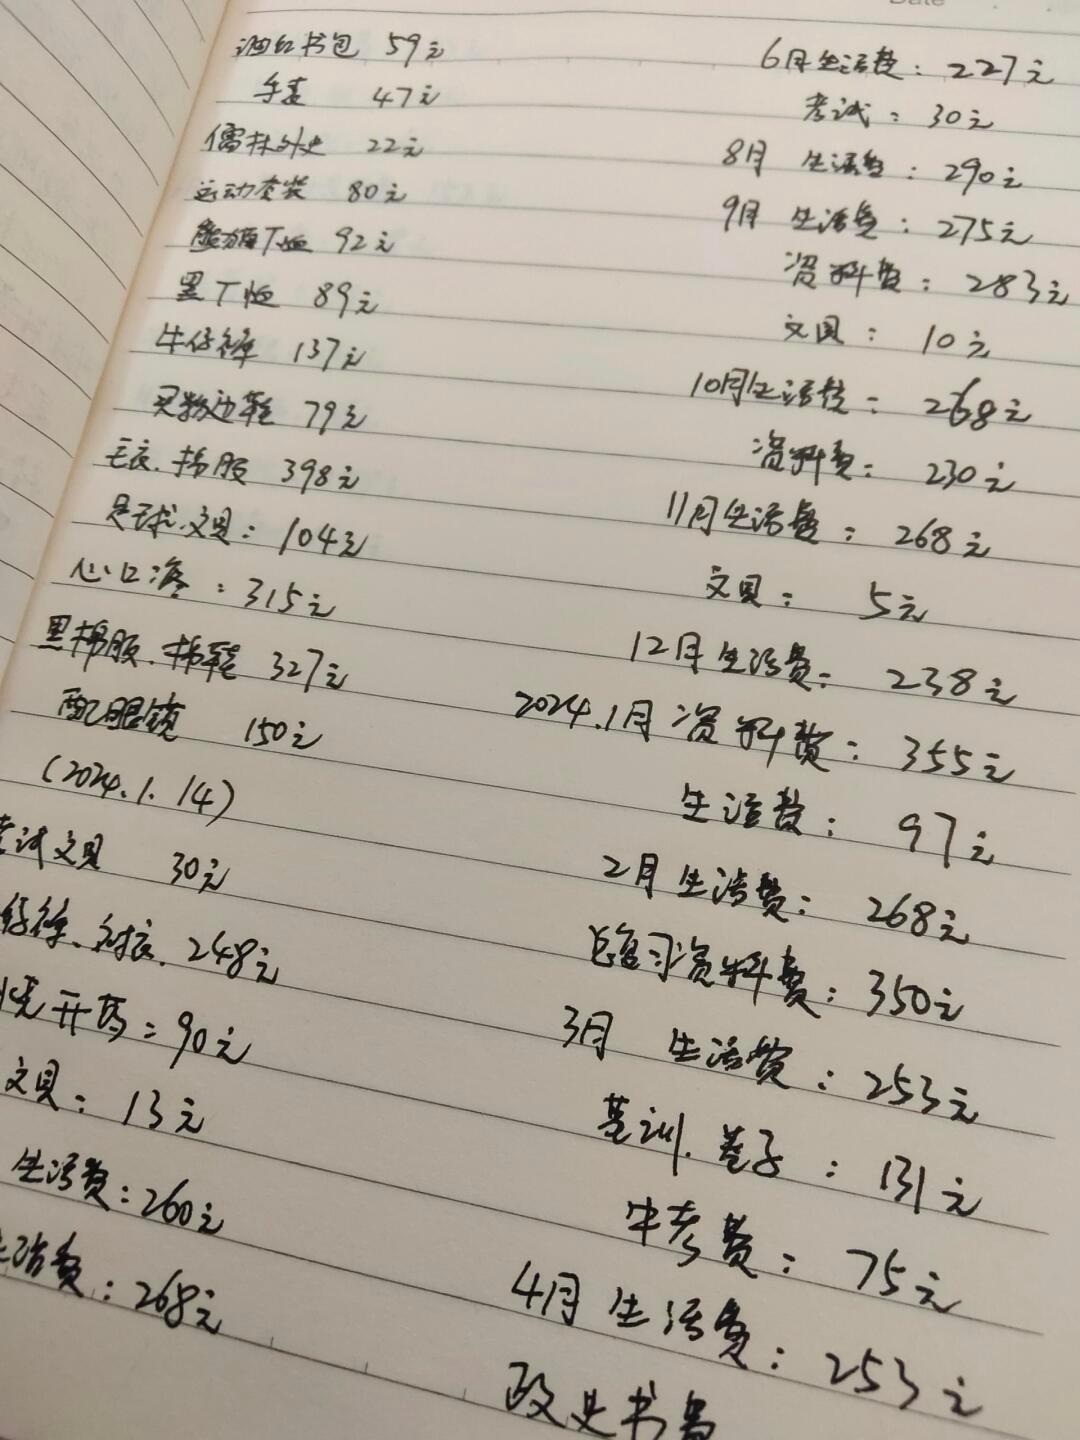 Date
酒红书包 59元
手套 47元
儒林外史 22元
运动套装 80元
T恤 92元
黑T恤 89元
牛仔裤 137元
买散边鞋 79元
毛衣.棉服 398元
足球.文具：104元
心口疼：315元
黑棉服.棉鞋 327元
配眼镜 150元
(2024.1.14)
考试文具 30元
仔裤、衬衣. 248元
开药：90元
文具：13元
生活费：260元
生活费：268元
6月生活费：227元
考试：30元
8月 生活费：290元
9月 生活费：275元
资料费：283元
文具：10元
10月生活费：268元
资料费：230元
11月生活费：268元
文具：5元
12月生活费：238元
2024.1月资料费：355元
生活费：97元
2月生活费：268元
总复习资料费：350元
3月 生活费：253元
基训.卷子：131元
中考费：75元
4月生活费：253元
政史书费